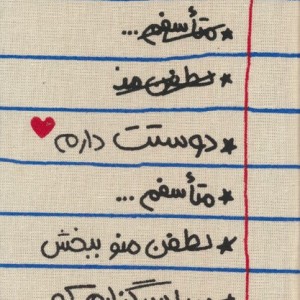 ★ متأسفم ...
★ لطفن منو
★ دوستت دارم
★ متأسفم ...
★ لطفن منو ببخش